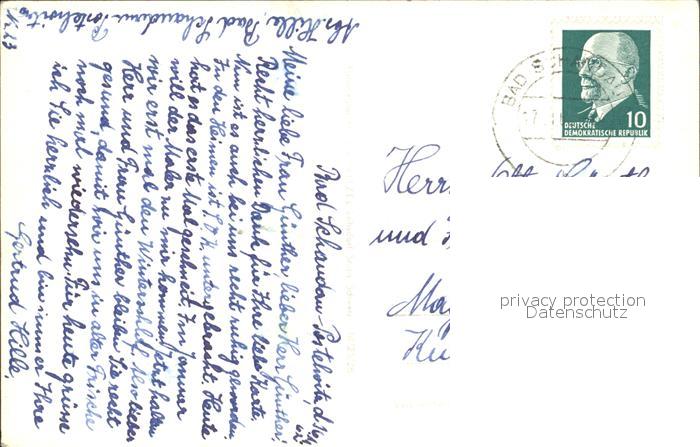 Abs. Hille, Bad Schandau-Postelwitz
Nr. 23
Bad Schandau-Postelwitz, d. 16.
Meine liebe Frau Günther, lieber Herr Günther,
Recht herzlichen Dank für Ihre liebe Karte.
Nun ist es auch bei uns recht ruhig geworden.
In den Heimen ist untergebracht. Heute
hat es das erste Mal geschneit. Im Januar
will der Maler zu mir kommen. Jetzt halten
wir erst mal den Winterschlaf. Also lieber
Herr und Frau Günther bleiben Sie recht
gesund, damit wir uns in alter Frische
noch mal wiedersehn. Für heute grüße
ich Sie herzlich und bin immer Ihre
Gertrud Hille.
BAD SCHANDAU
DEUTSCHE
DEMOKRATISCHE REPUBLIK
10
Herr
und
privacy protection
Datenschutz